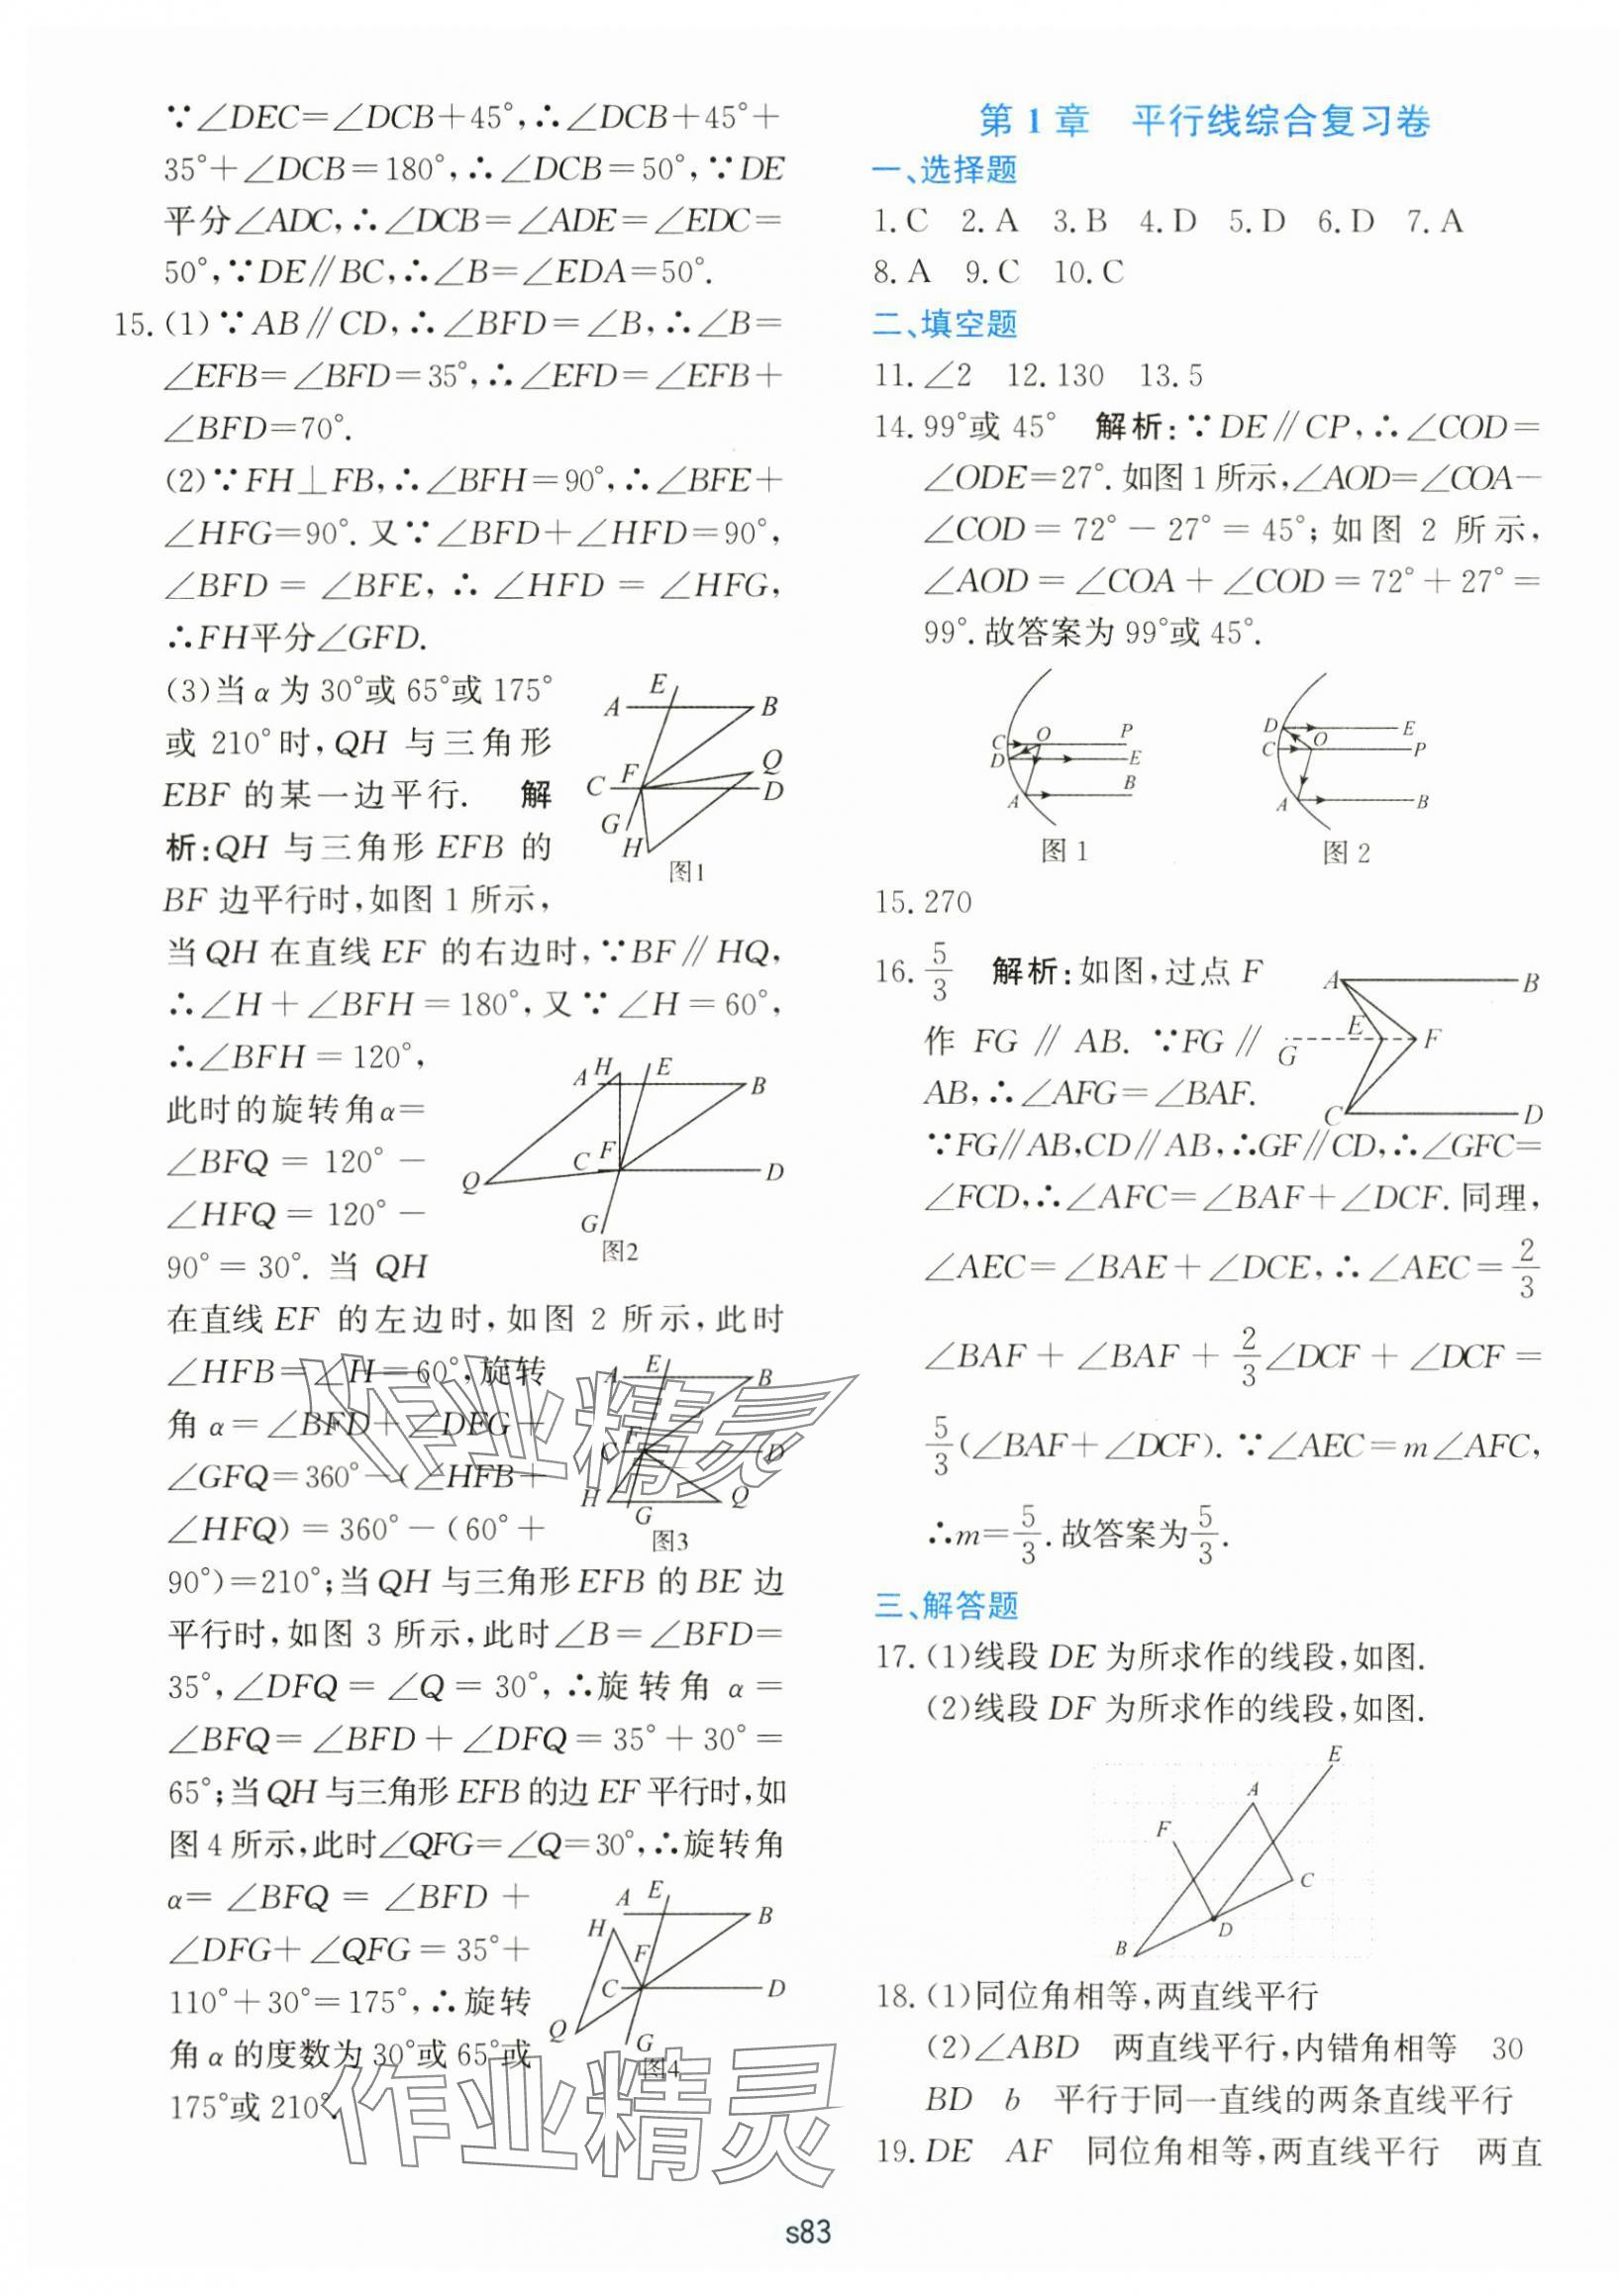 ∵∠DEC=∠DCB+45°,∴∠DCB+45°+
35°+∠DCB=180°,∴∠DCB=50°,∵DE
平分∠ADC,∴∠DCB=∠ADE=∠EDC=
50°,∵DE∥BC,∴∠B=∠EDA=50°.
15.(1)∵AB∥CD,∴∠BFD=∠B,∴∠B=
∠EFB=∠BFD=35°,∴∠EFD=∠EFB+
∠BFD=70°.
(2)∵FH⊥FB,∴∠BFH=90°,∴∠BFE+
∠HFG=90°.又∵∠BFD+∠HFD=90°,
∠BFD=∠BFE,∴∠HFD=∠HFG,
∴FH平分∠GFD.
(3)当α为30°或65°或175°
或210°时,QH与三角形
EBF的某一边平行. 解
析:QH与三角形EFB的
BF边平行时,如图1所示,
A E B C F Q D G H
图1
当QH在直线EF的右边时,∵BF∥HQ,
∴∠H+∠BFH=180°,又∵∠H=60°,
∴∠BFH=120°,
此时的旋转角α=
∠BFQ=120°-
∠HFQ=120°-
90°=30°.当QH
A H E B C F D Q G
图2
在直线EF的左边时,如图2所示,此时
∠HFB=∠H=60°,旋转
角α=∠BFD+∠DFG+
∠GFQ=360°-(∠HFB+
∠HFQ)=360°-(60°+
A E B C F D H G Q
图3
90°)=210°;当QH与三角形EFB的BE边
平行时,如图3所示,此时∠B=∠BFD=
35°,∠DFQ=∠Q=30°,∴旋转角α=
∠BFQ=∠BFD+∠DFQ=35°+30°=
65°;当QH与三角形EFB的边EF平行时,如
图4所示,此时∠QFG=∠Q=30°,∴旋转角
α=∠BFQ=∠BFD+
∠DFG+∠QFG=35°+
110°+30°=175°,∴旋转
角α的度数为30°或65°或
175°或210°.
A E B H F C D Q G
图4
第1章 平行线综合复习卷
一、选择题
1.C 2.A 3.B 4.D 5.D 6.D 7.A
8.A 9.C 10.C
二、填空题
11.∠2 12.130 13.5
14.99°或45° 解析:∵DE∥CP,∴∠COD=
∠ODE=27°.如图1所示,∠AOD=∠COA-
∠COD=72°-27°=45°;如图2所示,
∠AOD=∠COA+∠COD=72°+27°=
99°.故答案为99°或45°.
C O P D E A B
图1
D E C O P A B
图2
15.270
16.5/3 解析:如图,过点F
作FG∥AB.∵FG∥
AB,∴∠AFG=∠BAF.
A B E F G C D
∵FG∥AB,CD∥AB,∴GF∥CD,∴∠GFC=
∠FCD,∴∠AFC=∠BAF+∠DCF.同理,
∠AEC=∠BAE+∠DCE,∴∠AEC=2/3
∠BAF+∠BAF+2/3∠DCF+∠DCF=
5/3(∠BAF+∠DCF).∵∠AEC=m∠AFC,
∴m=5/3.故答案为5/3.
三、解答题
17.(1)线段DE为所求作的线段,如图.
(2)线段DF为所求作的线段,如图.
E A F C D B
18.(1)同位角相等,两直线平行
(2)∠ABD 两直线平行,内错角相等 30
BD b 平行于同一直线的两条直线平行
19.DE AF 同位角相等,两直线平行 两直
作业精灵
作业精灵
s83